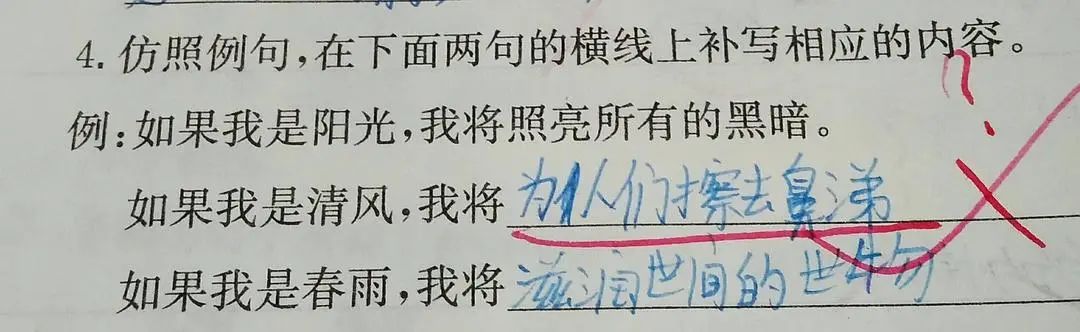 4. 仿照例句,在下面两句的横线上补写相应的内容。
例:如果我是阳光,我将照亮所有的黑暗。
如果我是清风,我将为人们擦去鼻涕
如果我是春雨,我将滋润世间的世物
?